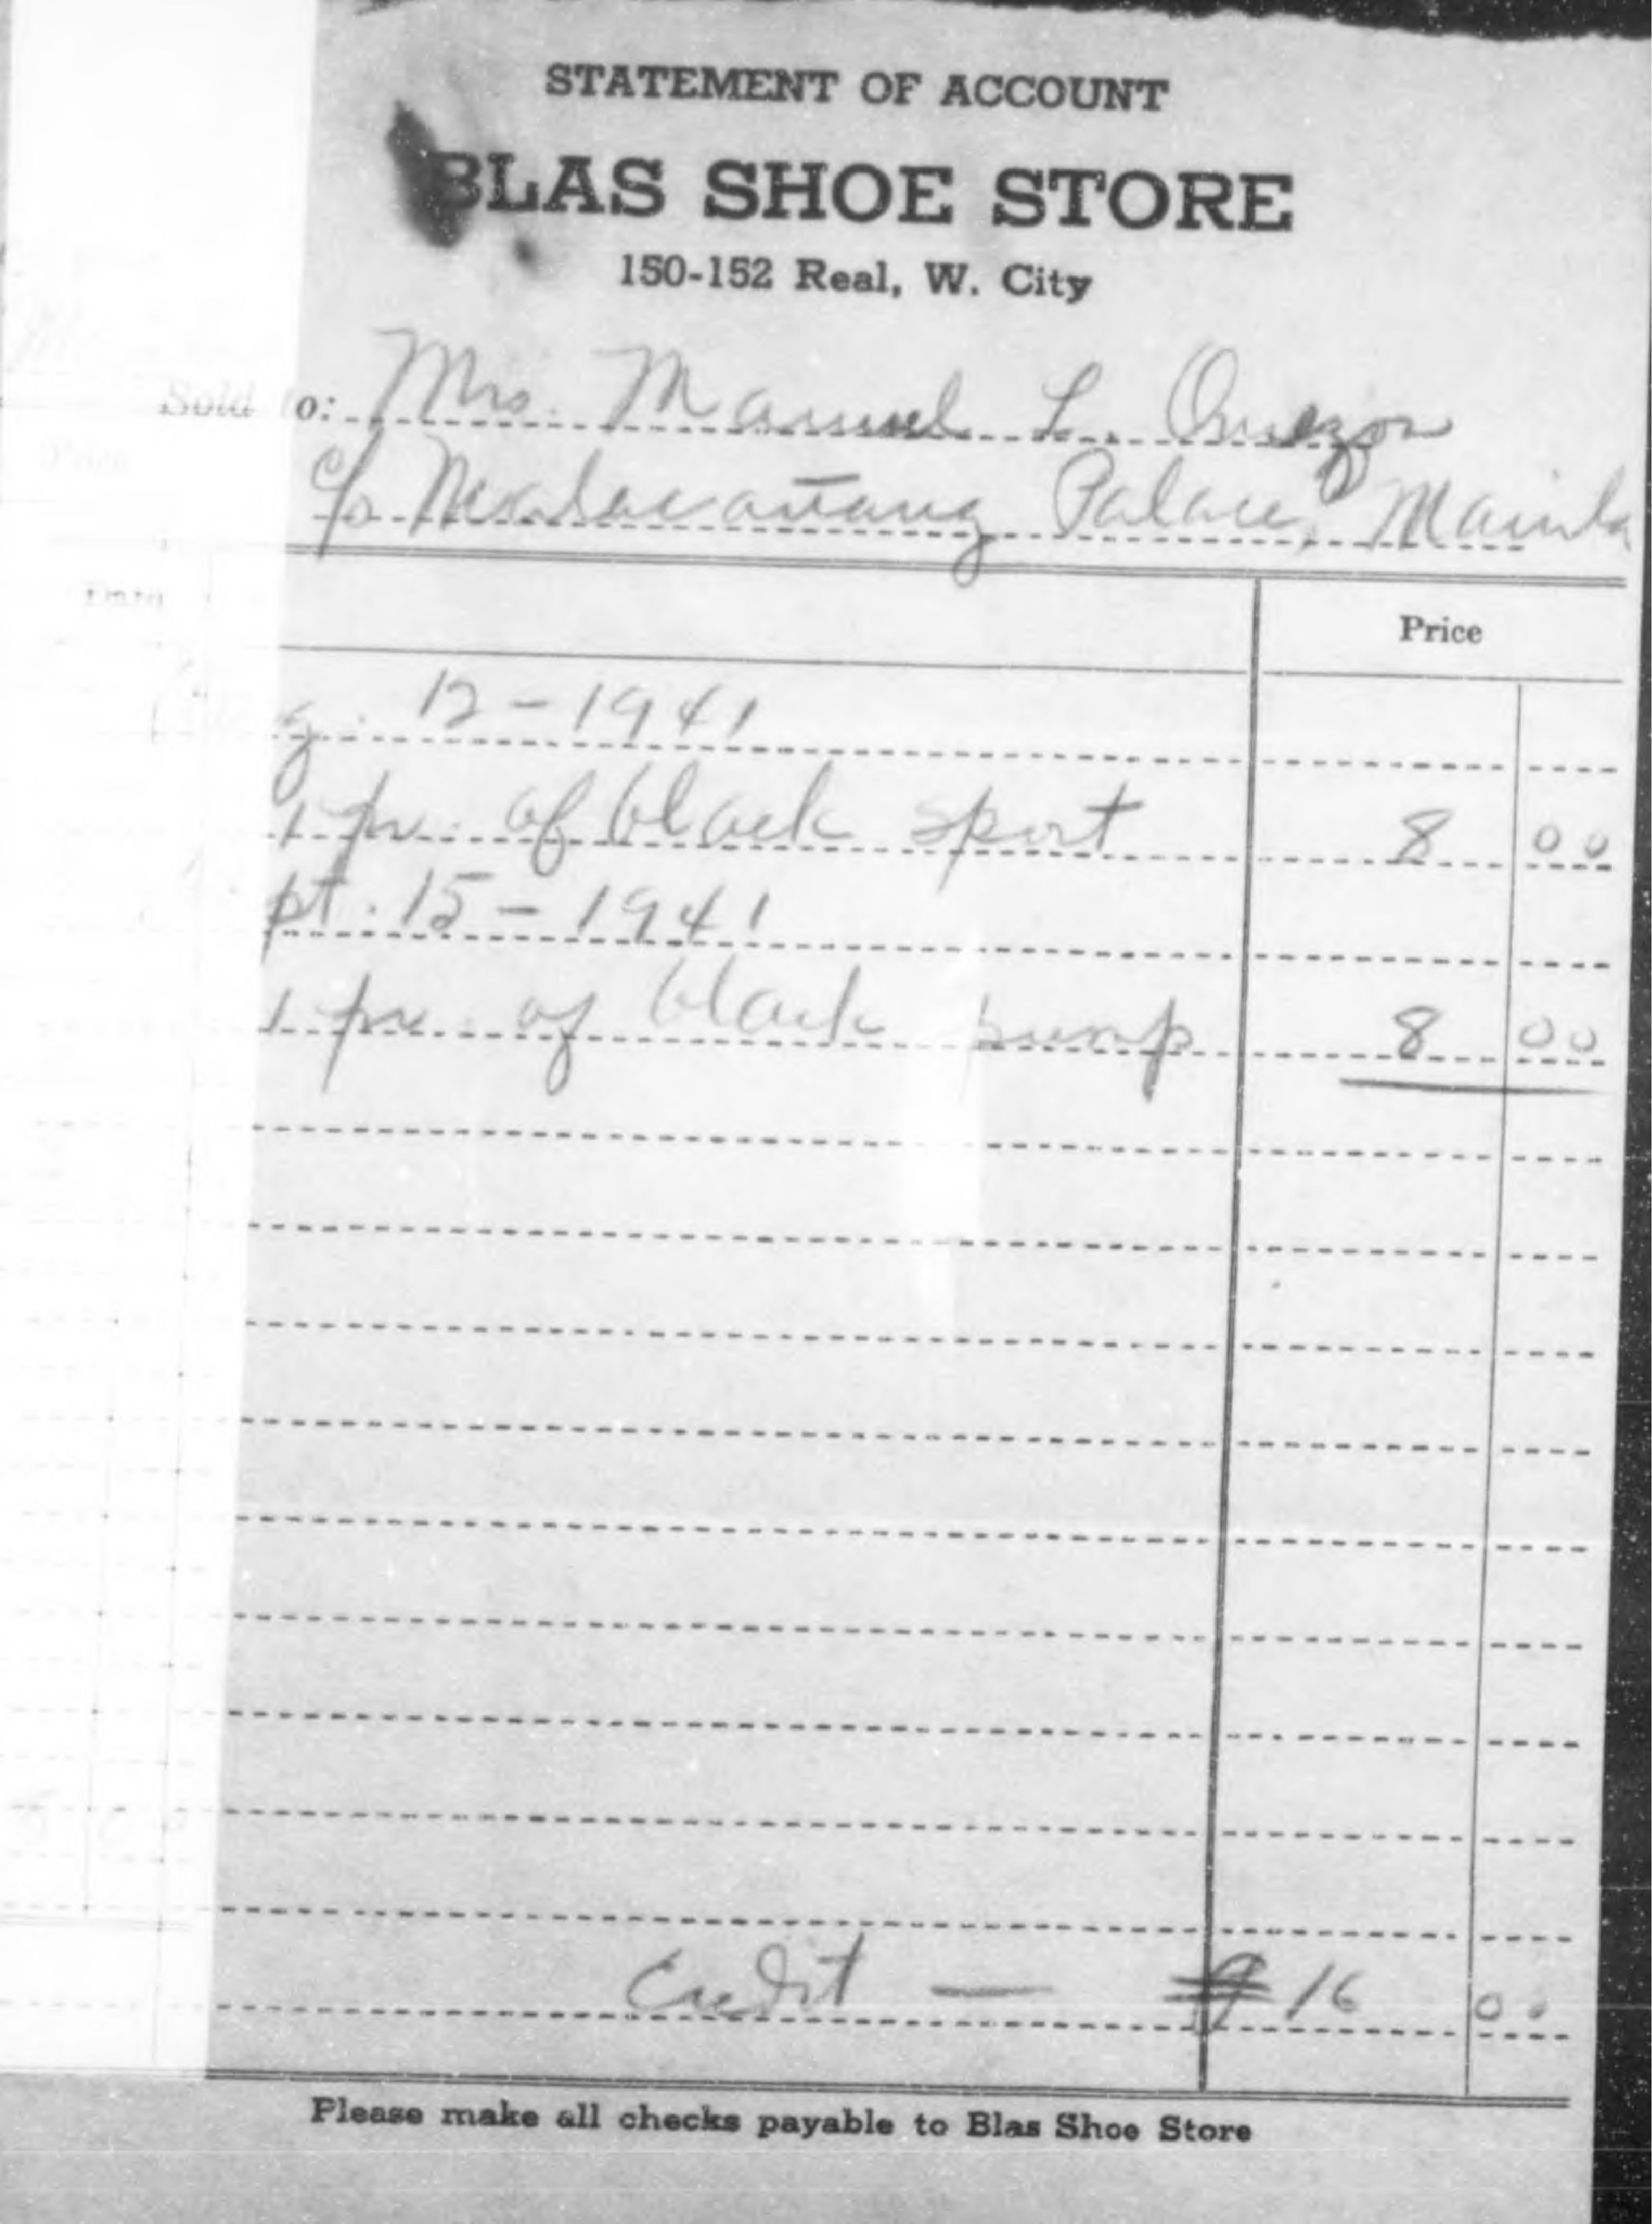 STATEMENT OF ACCOUNT
BLAS SHOE STORE
150-152 Real, W. City
Sold to: Mrs. Manuel L. Quezon
c/o Malacañang Palace, Manila
Price
g. 12-1941
1 pr. of black sport 8 00
pt. 15-1941
1 pr. of black pump 8 00
Credit — ₱16 00
Please make all checks payable to Blas Shoe Store